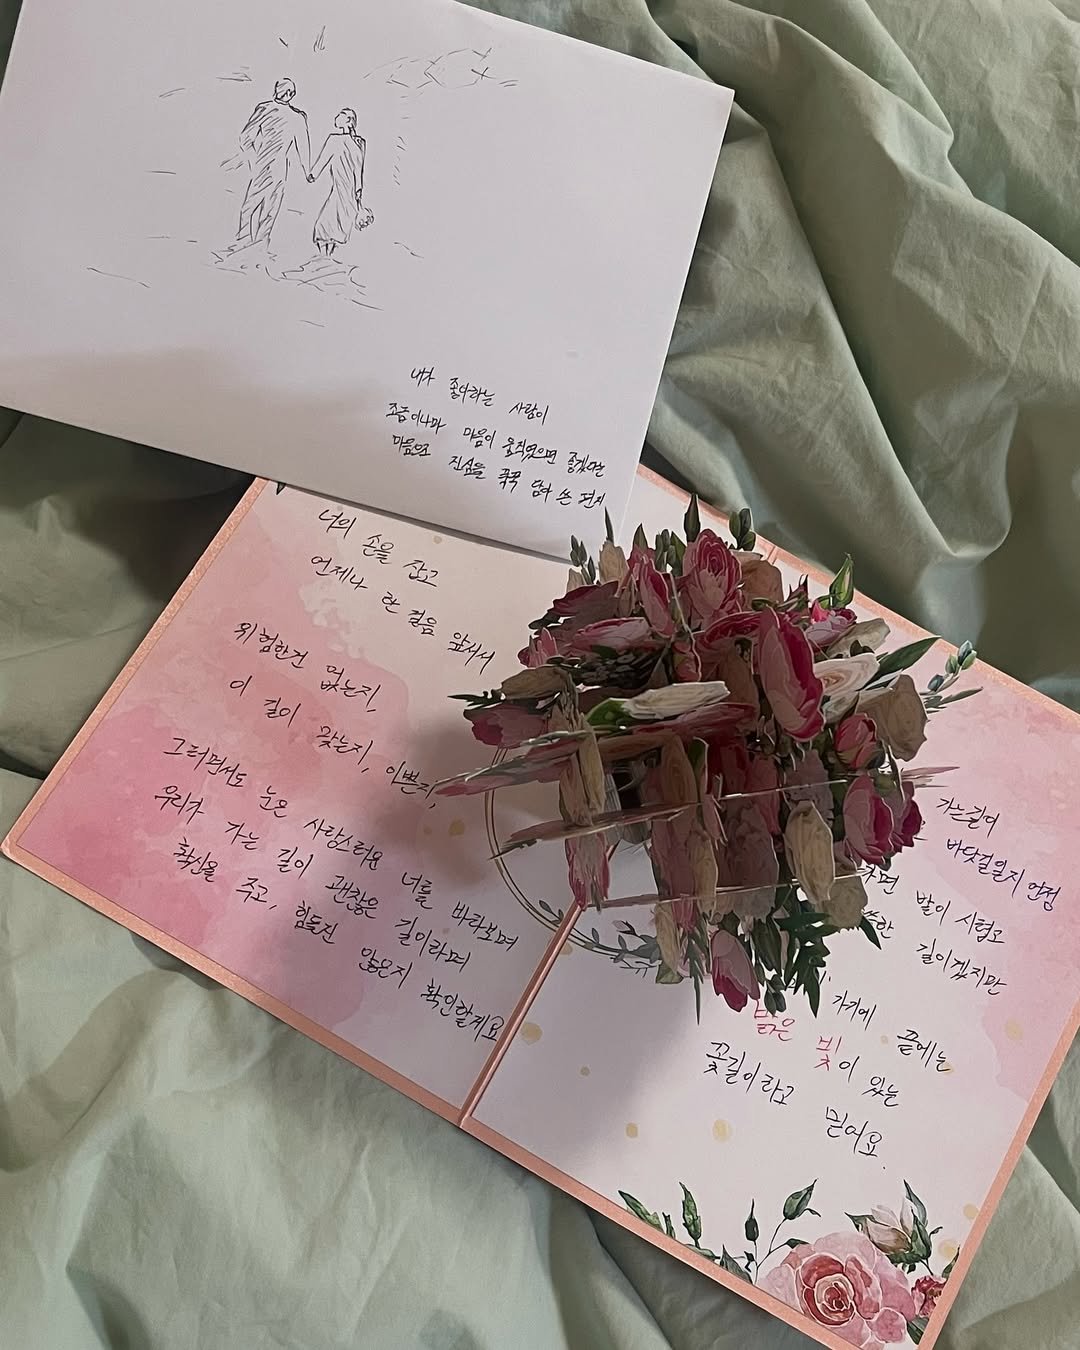 내가 좋아하는 사람이
조금이나마 마음이 움직였으면 좋겠다는
마음으로 진심을 꾹꾹 담아 쓴 편지
너의 손을 잡고
언제나 한 걸음 앞서서
위험한건 없는지,
이 길이 맞는지, 이쁜지,
그러면서도 눈은 사랑스러운 너를 바라보며
우리가 가는 길이 괜찮은 길이라며
확신을 주고, 힘들진 않은지 확인할게요
가는길이
바닷길일지 언정
발이 시렵고
길이겠지만
가기에 끝에는
밝은 빛이 있는
꽃길이라고 믿어요.